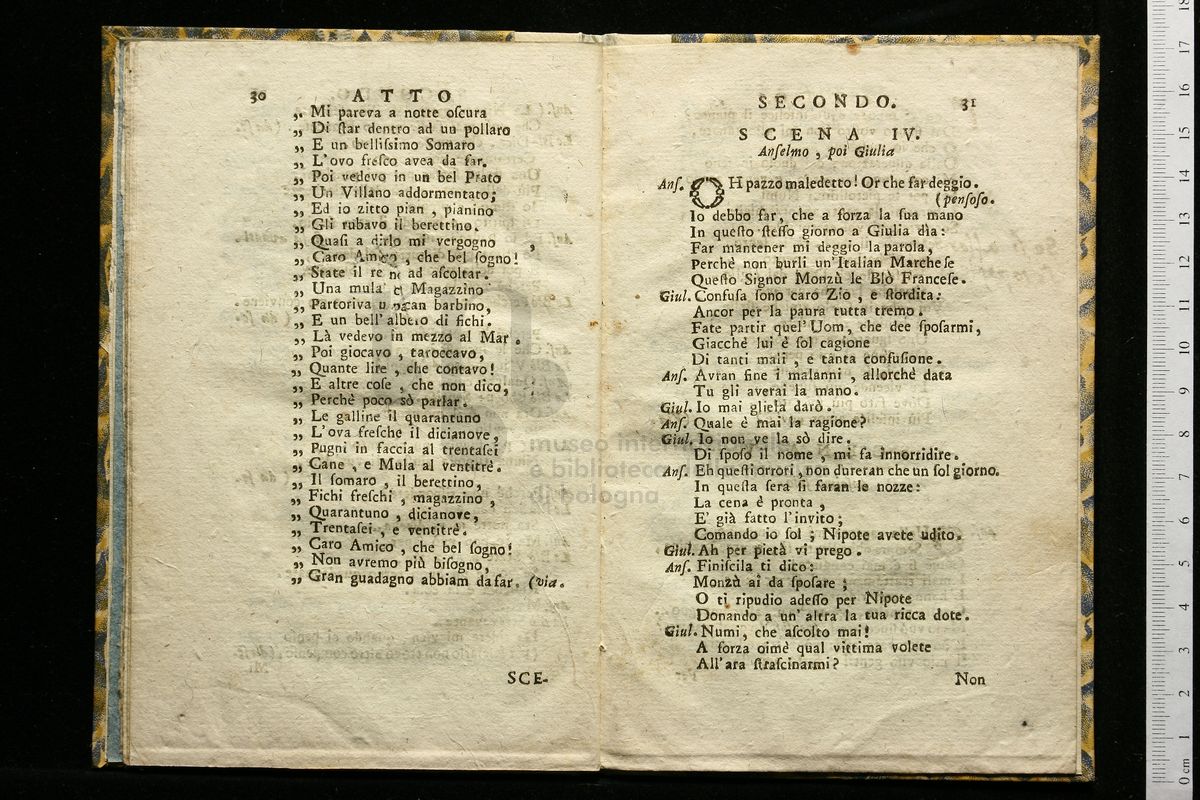 30 ATTO
„ Mi pareva a notte oſcura
„ Di ſtar dentro ad un pollaro
„ E un belliſsimo Somaro
„ L'ovo freſco avea da far.
„ Poi vedevo in un bel Prato
„ Un Villano addormentato;
„ Ed io zitto pian , pianino
„ Gli rubavo il berettino.
„ Quaſi a dirlo mi vergogno ,
„ Caro Amico , che bel ſogno!
„ State il re ad aſcoltar.
„ Una mula Magazzino
„ Partoriva barbino,
„ E un bell'albero di fichi.
„ Là vedevo in mezzo al Mar .
„ Poi giocavo , taroccavo,
„ Quante lire , che contavo!
„ E altre coſe , che non dico,
„ Perchè poco sò parlar.
„ Le galline il quarantuno
„ L'ova freſche il dicianove,
„ Pugni in faccia al trentaſei
„ Cane , e Mula al ventitrè.
„ Il ſomaro , il berettino,
„ Fichi freſchi , magazzino ,
„ Quarantuno , dicianove,
„ Trentaſei , e ventitrè.
„ Caro Amico , che bel ſogno!
„ Non avremo più biſogno,
„ Gran guadagno abbiam da far. (via.
SCE-
SECONDO. 31
SCENA IV.
Anſelmo , poi Giulia
Anſ. OH pazzo maledetto! Or che far deggio.
(penſoſo.
Io debbo far, che a forza la ſua mano
In queſto ſteſſo giorno a Giulia dìa:
Far mantener mi deggio la parola,
Perchè non burli un'Italian Marcheſe
Queſto Signor Monzù le Blò Franceſe.
Giul. Confuſa ſono caro Zio , e ſtordita:
Ancor per la paura tutta tremo.
Fate partir quel'Uom, che dee ſpoſarmi,
Giacchè lui è ſol cagione
Di tanti mali , e tanta confuſione.
Anſ. Avran fine i malanni , allorchè data
Tu gli averai la mano.
Giul. Io mai gliela darò.
Anſ. Quale è mai la ragione?
Giul. Io non ve la sò dire.
Di ſpoſo il nome , mi fa innorridire.
Anſ. Eh queſti orrori , non dureran che un ſol giorno.
In queſta ſera ſi faran le nozze:
La cena è pronta ,
E' già fatto l'invito;
Comando io ſol ; Nipote avete udito.
Giul. Ah per pietà vi prego .
Anſ. Finiſcila ti dico:
Monzù ai da ſpoſare ;
O ti ripudio adeſſo per Nipote
Donando a un'altra la tua ricca dote.
Giul. Numi, che aſcolto mai!
A forza oimè qual vittima volete
All'ara ſtraſcinarmi?
Non
museo inter
e biblioteca
di bologna
0 cm 1 2 3 4 5 6 7 8 9 10 11 12 13 14 15 16 17 18